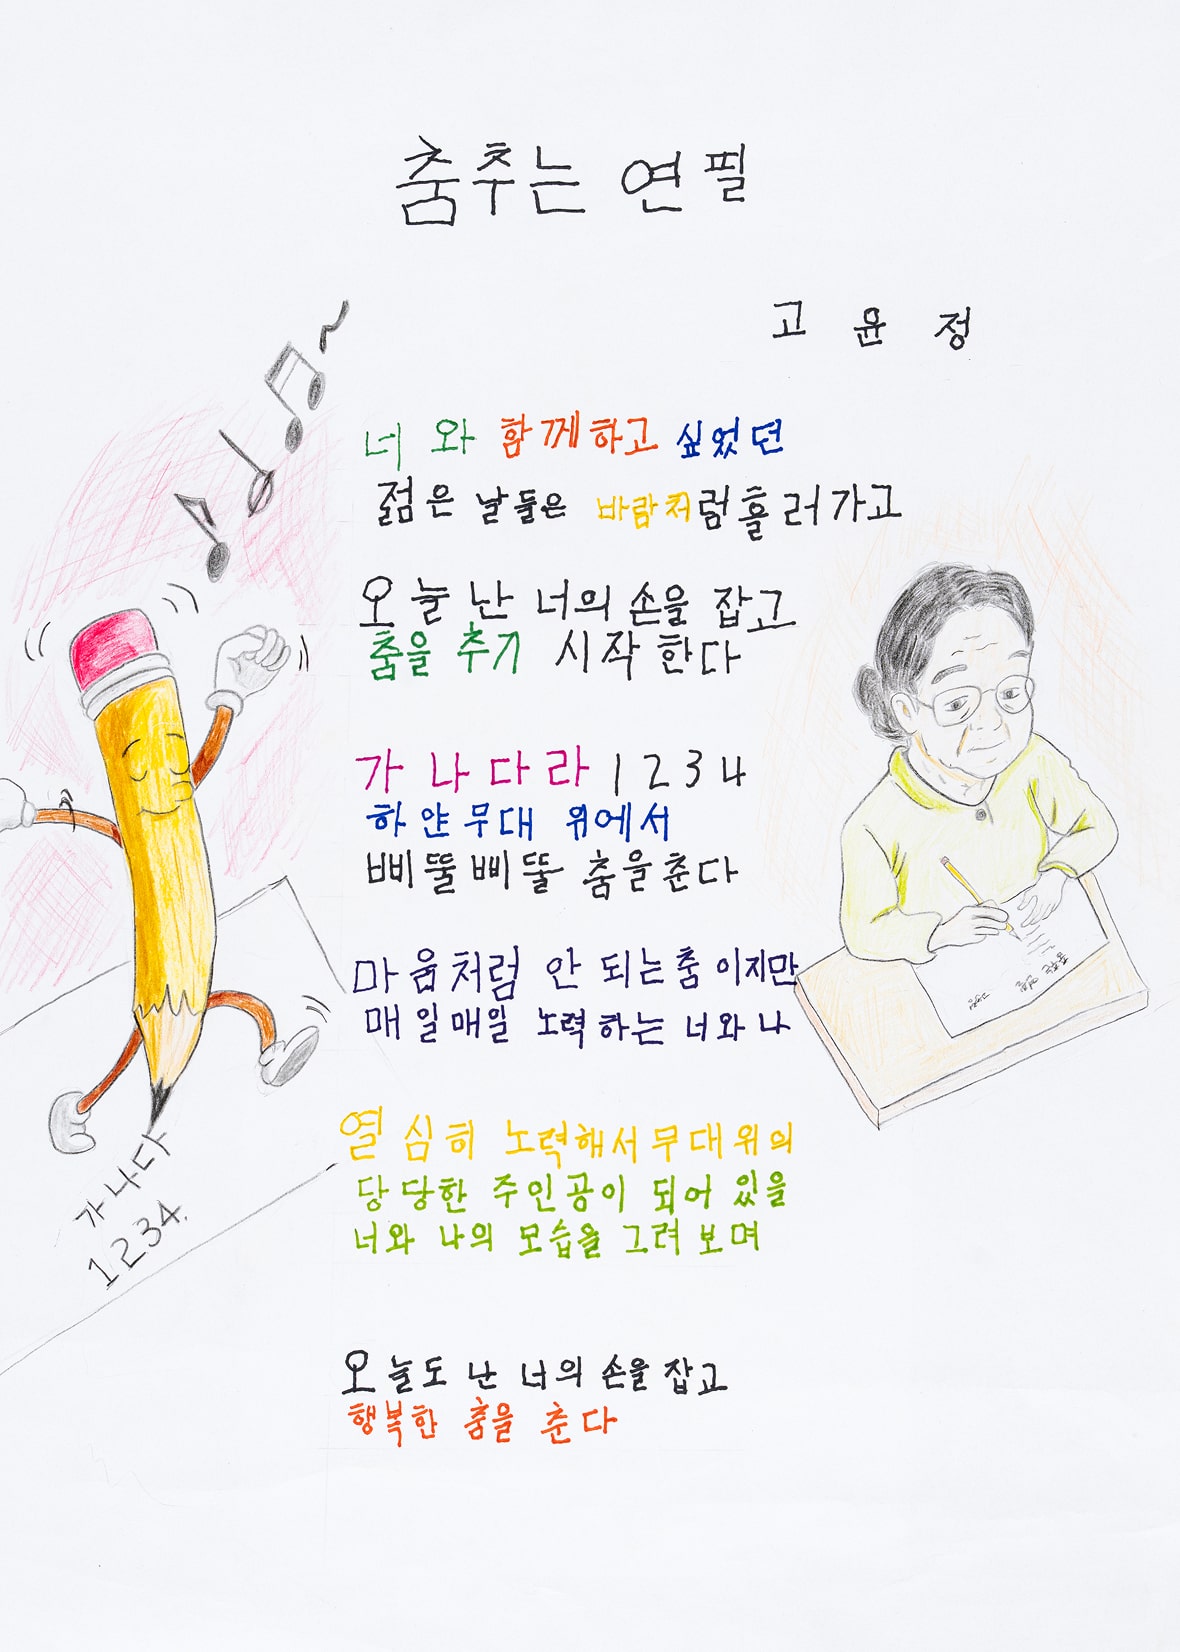 춤추는 연필
고 윤 정
너와 함께하고 싶었던
젊은 날들은 바람처럼흘러가고
오늘 난 너의 손을 잡고
춤을 추기 시작한다
가 나 다 라 1 2 3 4
하얀무대 위에서
삐뚤삐뚤 춤을춘다
마음처럼 안 되는춤이지만
매일매일 노력하는 너와 나
열심히 노력해서무대위의
당당한 주인공이 되어 있을
너와 나의 모습을 그려보며
오늘도 난 너의 손을 잡고
행복한 춤을 춘다
가나다
1234.